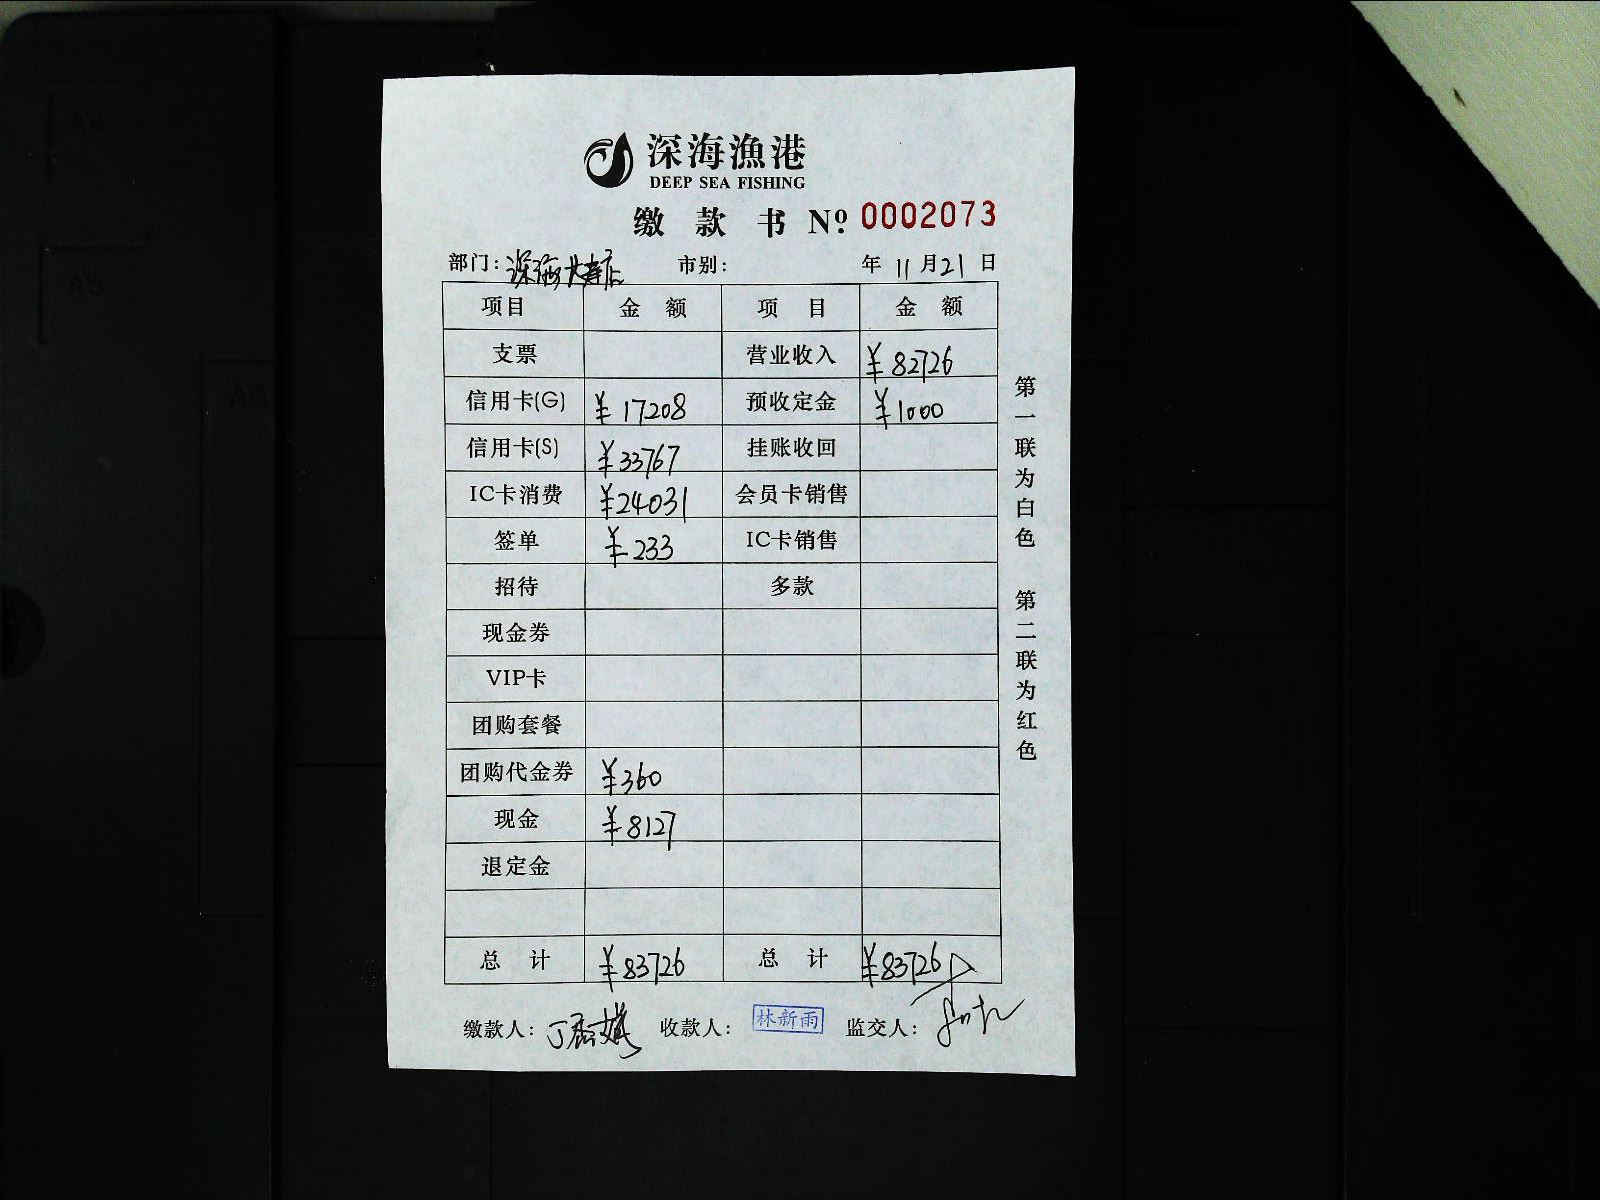 深海漁港
DEEP SEA FISHING
缴款书 Nº: 0002073
部门: 深海大寿店 市别: 年 11 月 21 日
项目 金额 项目 金额
支票 营业收入 ¥82726
信用卡(G) ¥17208 预收定金 ¥1000
信用卡(S) ¥33767 挂账收回
IC卡消费 ¥24031 会员卡销售
签单 ¥233 IC卡销售
招待 多款
现金券
VIP卡
团购套餐
团购代金券 ¥360
现金 ¥8127
退定金
总计 ¥83726 总计 ¥83726
缴款人: 收款人: 林新雨 监交人:
第一联为白色 第二联为红色